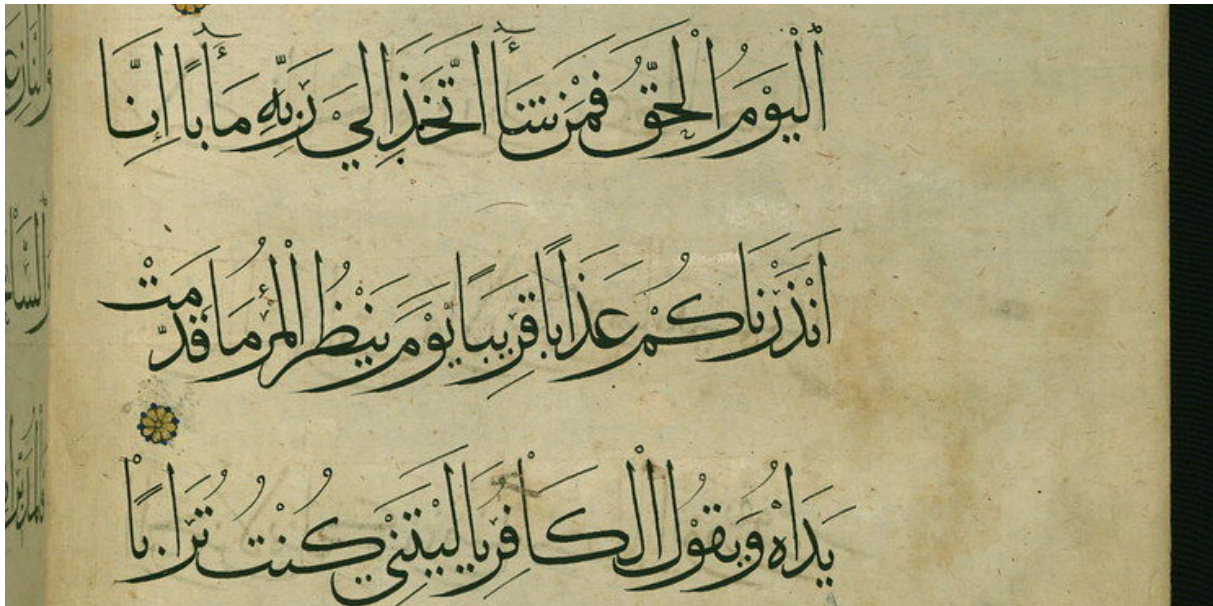 اَلْيَوْمُ الْحَقُّ فَمَنْ شَآءَ اتَّخَذَ اِلَي رَبِّهِ مَاٰبًا اِنَّا
اَنْذَرْنَاكُمْ عَذَابًا قَرِيبًا يَوْمَ يَنْظُرُ الْمَرْءُ مَا قَدَّمَتْ
يَدَاهُ وَيَقُولُ الْكَافِرُ يَا لَيْتَنِي كُنْتُ تُرَابًا